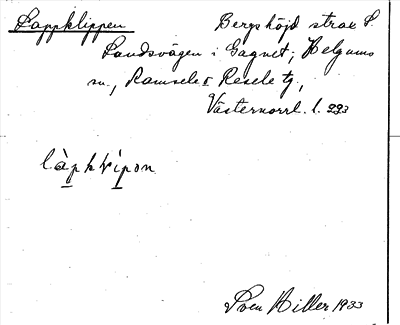 Lappklippen Bergshöjd strax S.
Landsvägen i Gagnet, Helgums
sn, Ramsele o Resele tg,
Västernorrl. l. 223
làpkìpon
Sven Hiller 1933